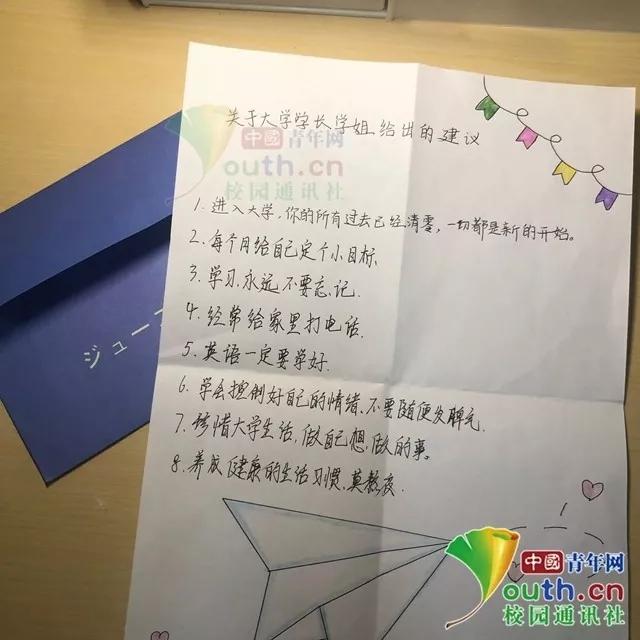 关于大学学长学姐给出的建议
中國青年网
outh.cn
校园通讯社
1. 进入大学,你的所有过去已经清零,一切都是新的开始。
2. 每个月给自己定个小目标.
3. 学习,永远不要忘记.
4. 经常给家里打电话.
5. 英语一定要学好.
6. 学会控制好自己的情绪,不要随便发脾气.
7. 珍惜大学生活,做自己想做的事。
8. 养成健康的生活习惯,莫熬夜.
ジュー
中國青年网
outh.cn
校园通讯社